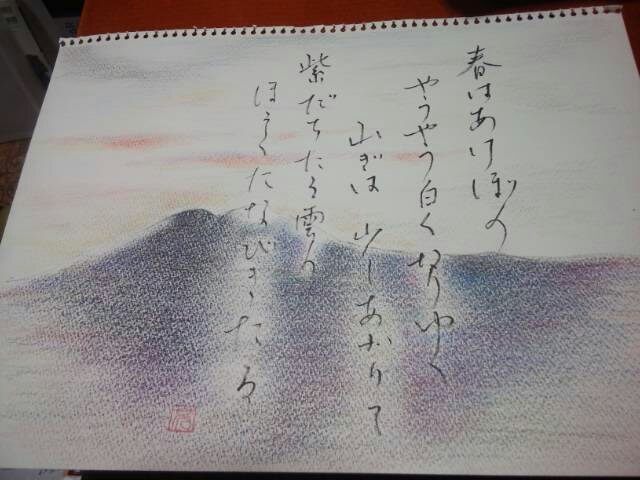 春はあけぼの
やうやう白くなりゆく
山ぎは 少しあかりて
紫だちたる雲の
ほそくたなびきたる